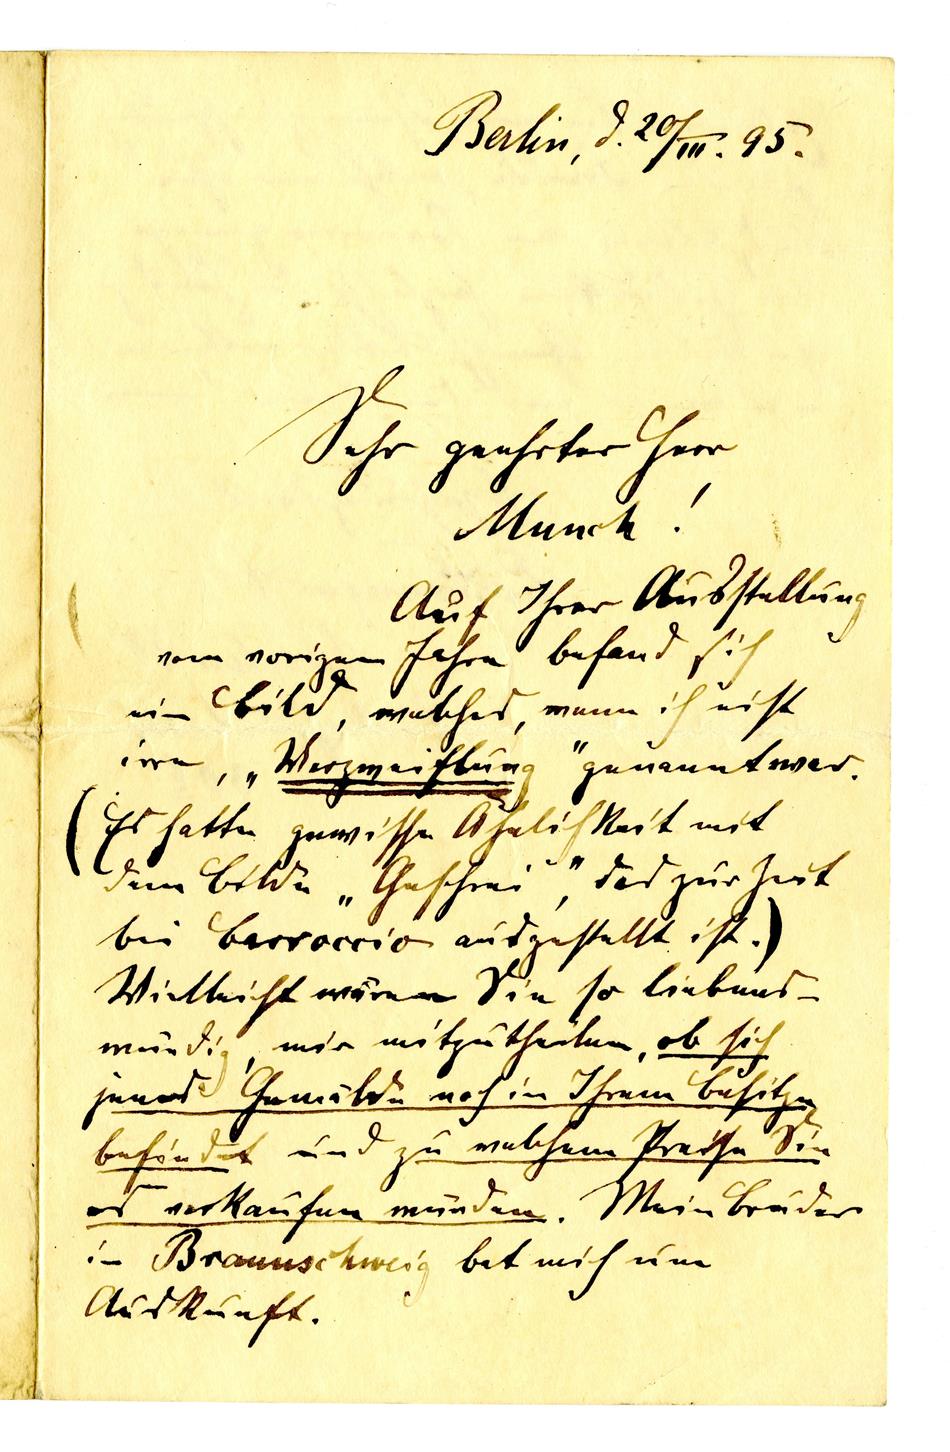 Berlin, d. 20/III. 95.
Sehr geehrter Herr
Munch!
Auf Ihrer Ausstellung
vom vorigen Jahre befand sich
ein Bild, welches, wenn ich nicht
irre, „Verzweiflung" genannt war.
(Es hatte gewisse Ähnlichkeit mit
dem Bilde „Geschrei", das zur Zeit
bei Barroccio ausgestellt ist.)
Vielleicht wären Sie so liebens-
würdig, mir mitzutheilen, ob sich
jenes Gemälde noch in Ihrem Besitze
befindet und zu welchem Preise Sie
es verkaufen würden. Mein Bruder
in Braunschweig bat mich um
Auskunft.